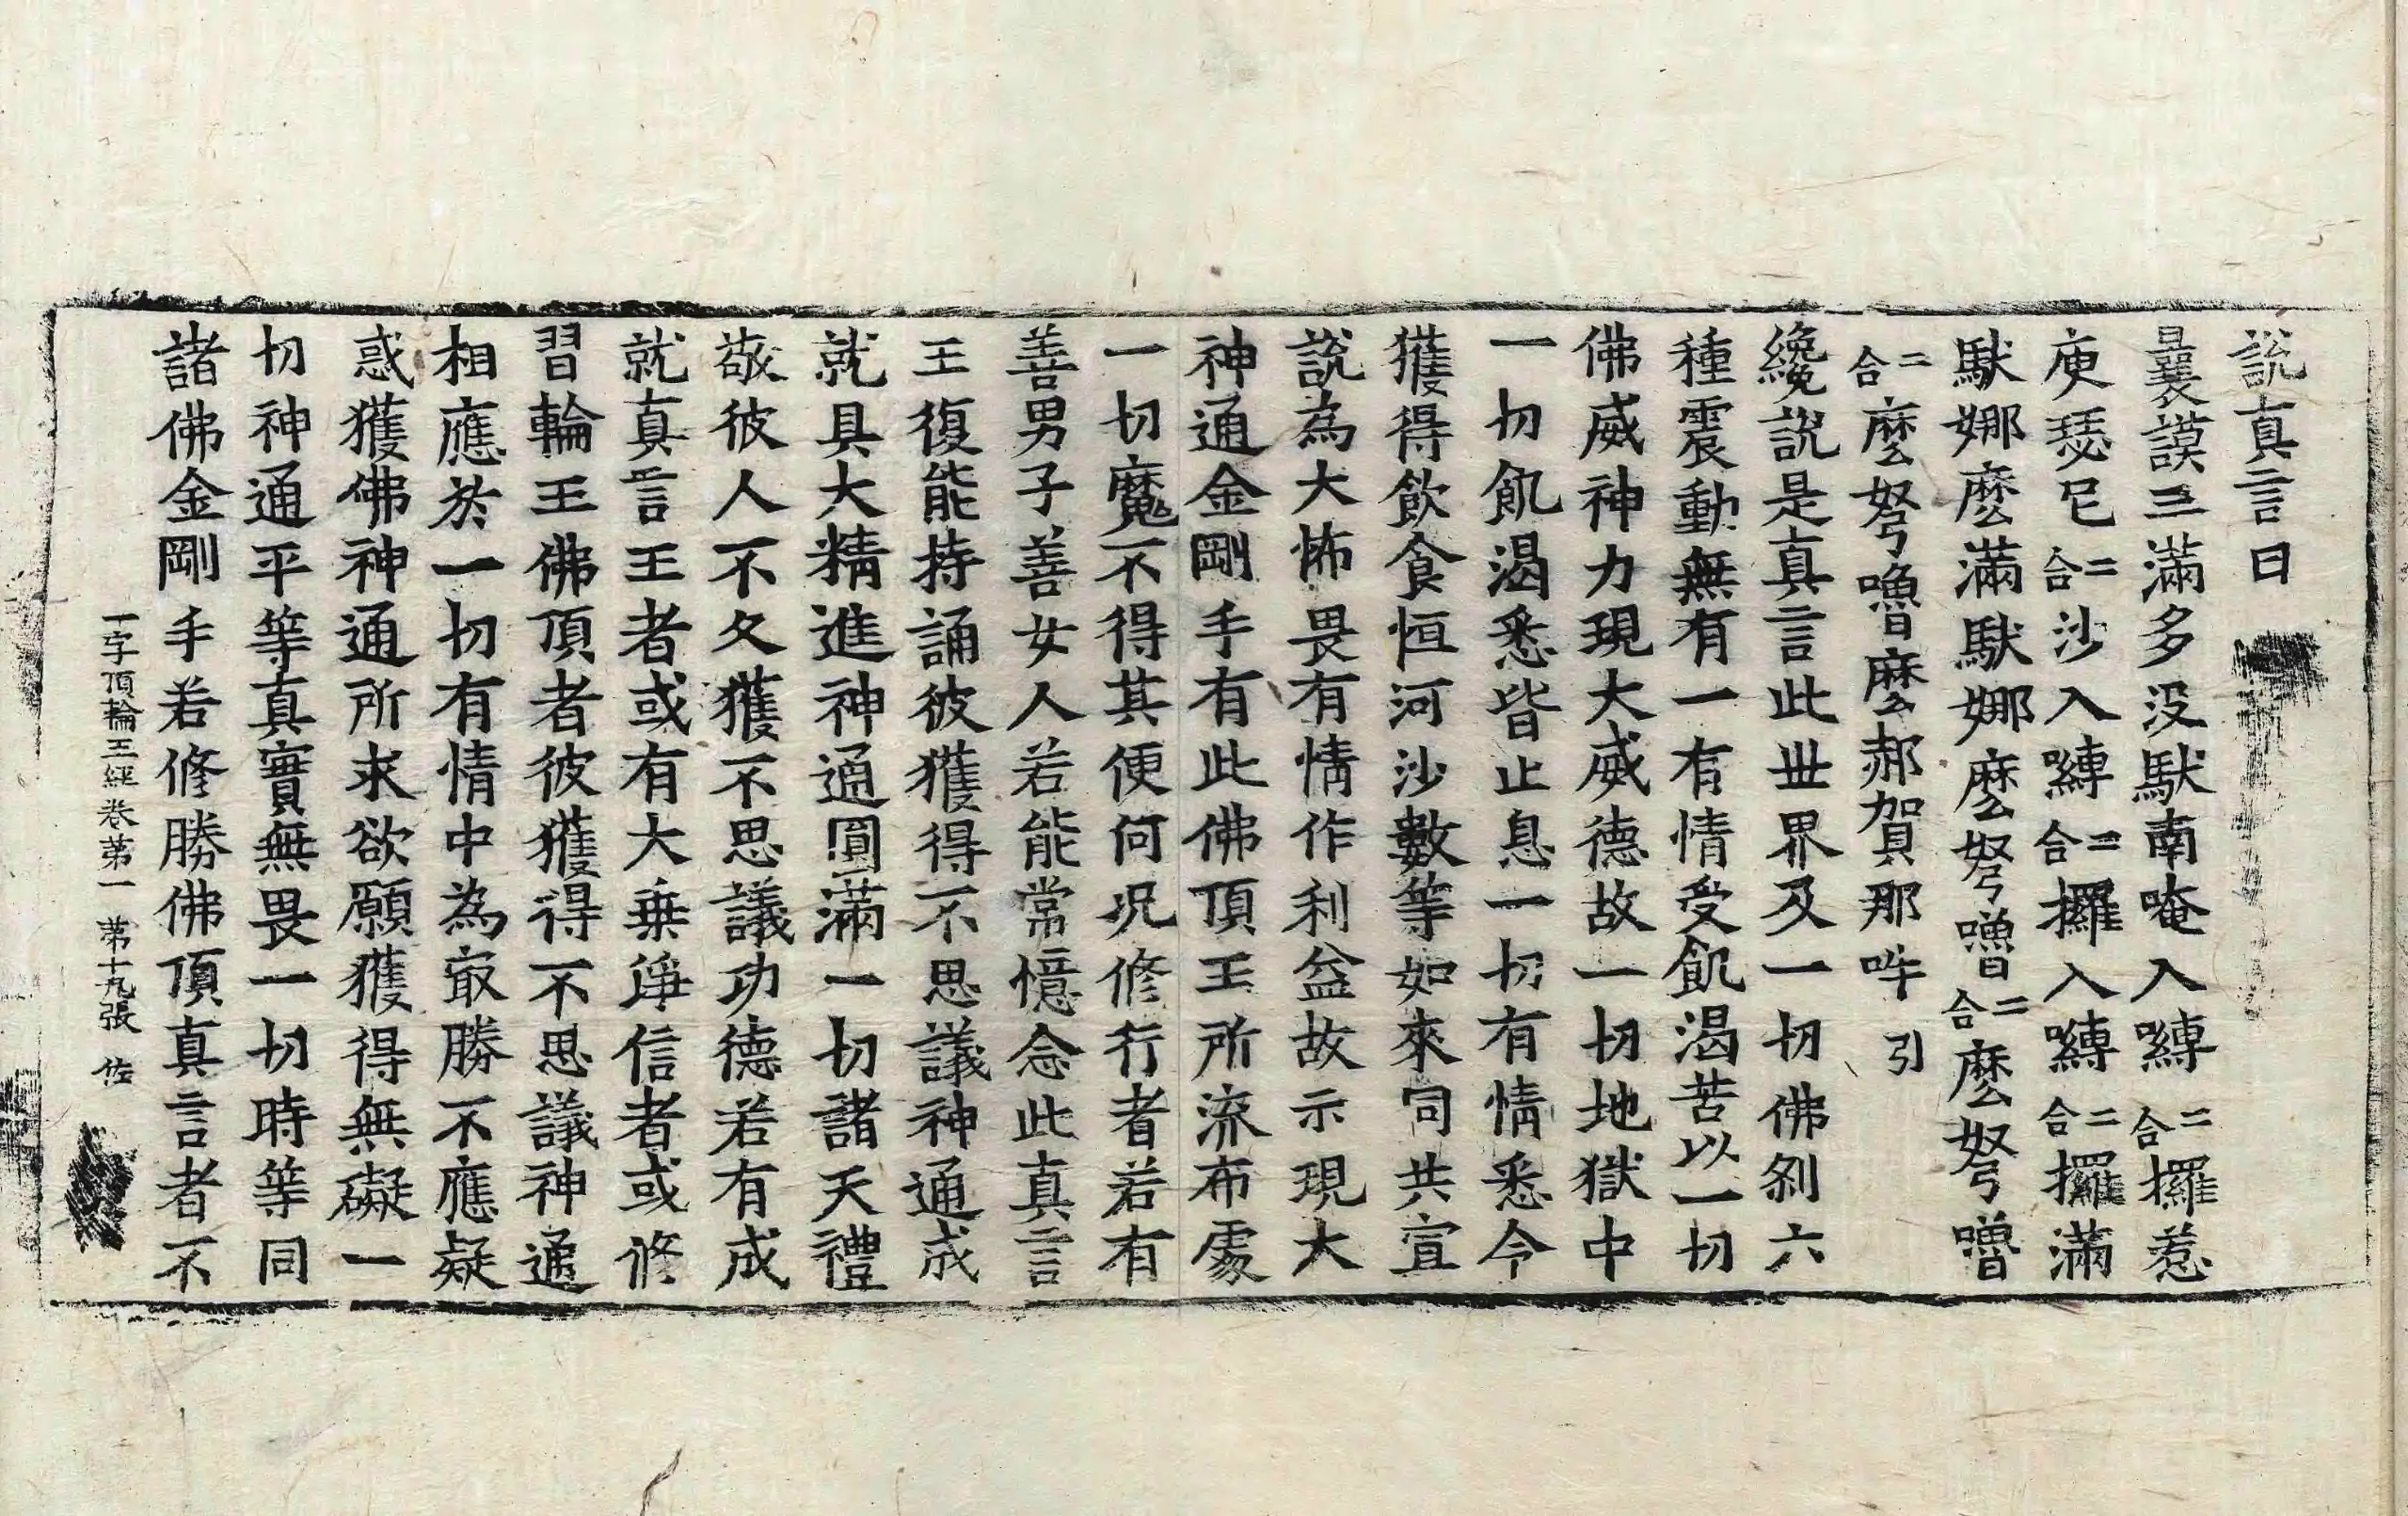 說真言曰
曩謨三滿多没馱南唵入嚩二合攞惹
庾瑟尼二合沙入嚩二合攞入嚩二合攞滿
馱娜麼滿馱娜麼弩嚕二合麼弩嚕
二合麼弩嚕麼郝賀那吽引
纔說是真言此世界及一切佛剎六
種震動無有一有情受飢渴苦以一切
佛威神力現大威德故一切地獄中
一切飢渴悉皆止息一切有情悉令
獲得飲食恒河沙數等如來同共宣
說為大怖畏有情作利益故示現大
神通金剛手有此佛頂王所流布處
一切魔不得其便何況修行者若有
善男子善女人若能常憶念此真言
王復能持誦彼獲得不思議神通成
就具大精進神通圓滿一切諸天禮
敬彼人不久獲不思議功德若有成
就真言王者或有大乗淨信者或修
習輪王佛頂者彼獲得不思議神通
相應於一切有情中為冣勝不應疑
惑獲佛神通所求欲願獲得無礙一
切神通平等真實無畏一切時等同
諸佛金剛手若修勝佛頂真言者不
一字頂輪王經卷第一 第十九張 佐